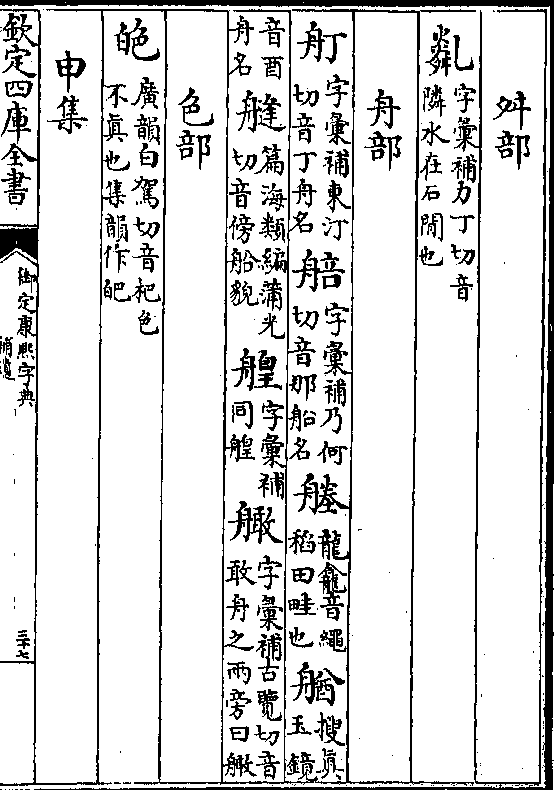 舛部
字彙補力丁切音
隣水在石閒也
舟部
舟丁 字彙補東汀
切音丁舟名
字彙補乃何
切音那船名
龍龕音繩
稻田畦也
搜真玉鏡
音酉
舟名
篇海類編蒲光
切音傍船貌
艎 字彙補
同艎
字彙補古覽切音
敢舟之兩旁曰
色部
廣韻白駕切音杷色
不真也集韻作
申集
欽定四庫全書
御定康熙字典
補遺
三十七